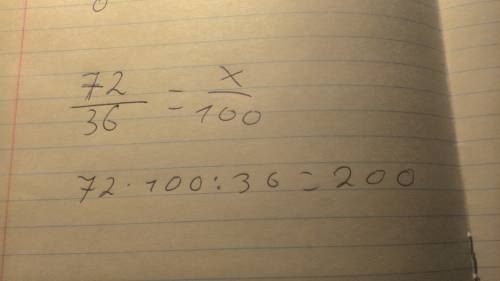 72/36 = x/100
72 · 100 : 36 = 200